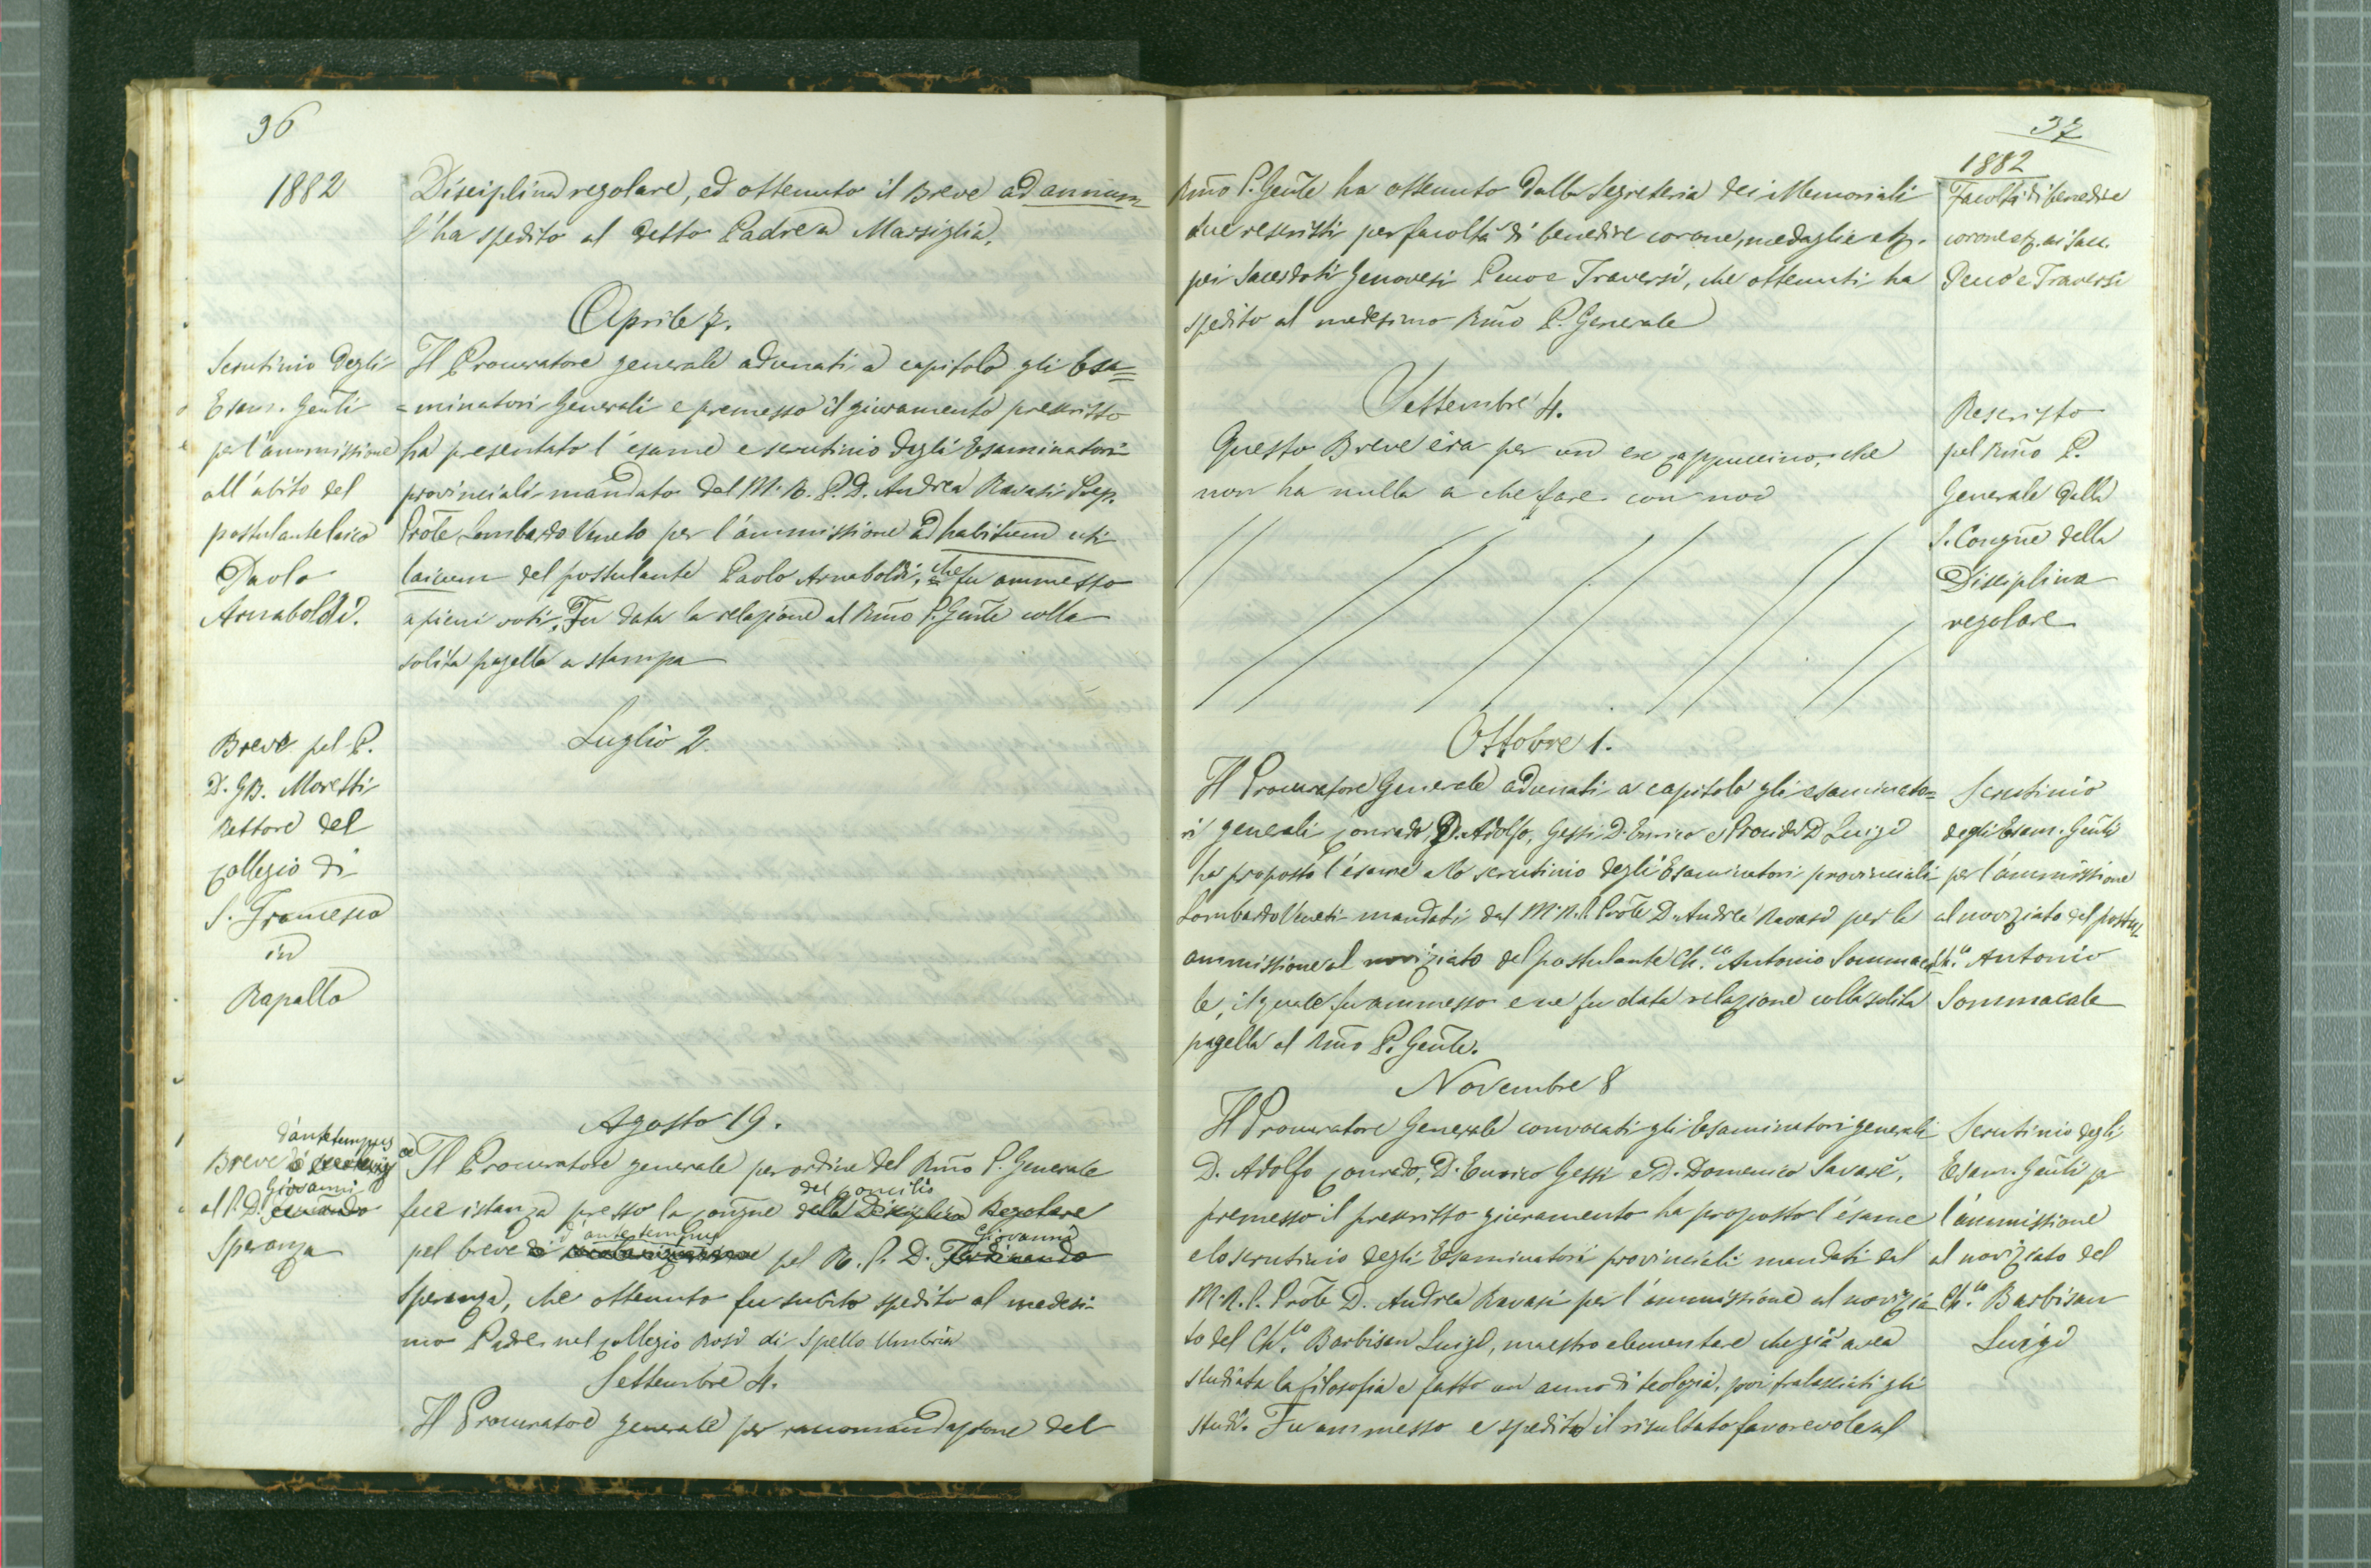 36
1882
Disciplina regolare, ed ottenuto il Breve ad annum
l'ha spedito al detto Padre a Marsiglia.
Aprile 7.
Scrutinio degli
Esam. Genli
per l'ammissione
all'abito del
postulante laico
Paolo
Arnaboldi.
Il Procuratore generale adunati a capitolo gli Esa=
=minatori Generali e premesso il giuramento prescritto
ha presentato l'esame e scrutinio degli Esaminatori
provinciali mandato dal M. R. P. D. Andrea Ravasi Prep.
Prõle Lombardo Veneto per l'ammissione ad habitum uti
laicum del postulante Paolo Arnaboldi, che fu ammesso
a pieni voti. Fu data la relazione al Rmo P. Gnle colla
solita pagella a stampa
Luglio 2.
Breve pel P.
D. GB. Moretti
Rettore del
Collegio di
S. Francesco
in
Rapallo
Agosto 19.
d'ante tempus
Breve di
Giovanni
al P. D.
Speranza
Il Procuratore generale per ordine del Rmo P. Generale
del Concilio
fece istanza presso la Congne della Disciplina Regolare
d'ante tempus Giovanni
pel breve di secolarizzazione pel R. P. D. Ferdinando
Speranza, che ottenuto fu subito spedito al medesi=
mo Padre nel Collegio Rosi di Spello Umbria
Settembre 4.
Il Procuratore generale per raccomandazione del
37
1882
Rmo P. Gente ha ottenuto dalla Segreteria dei Memoriali
due rescritti per facoltà di benedire corone, medaglie etz.
pei Sacerdoti Genovesi Peno e Traversi, che ottenuti ha
spedito al medesimo Rmo P. Generale
Facoltà di benedire
corone etz. ai Sac.
Peno e Traversi
Settembre 4.
Questo Breve era per un ex Cappuccino, che
non ha nulla a che fare con noi
Rescritto
pel Rmo P.
Generale dalla
S. Congne della
Disciplina
regolare
Ottobre 1.
Il Procuratore Generale adunati a capitolo gli esaminato=
ri geneali Conrado D. Adolfo, Gessi D. Enrico e D. Luigi
ha proposto l'esame e lo scrutinio degli Esaminatori provinciali
Lombardo Veneti mandati dal M. R. P. Prõle D. Andrea Ravasi per la
ammissione al noviziato del postulante Ch.co Antonio Sommaca
le, il quale fu ammesso e ne fu data relazione colla solita
pagella al Rmo P. Genle.
Scrutinio
degli Esam. Genli
per l'ammissione
al noviziato del postul.
Ch.co Antonio
Sommacale
Novembre 8
Il Procuratore Generale convocati gli Esaminatori generali
D. Adolfo Conrado, D. Enrico Gessi e D. Domenico Savarè,
premesso il prescritto giuramento ha proposto l'esame
e lo scrutinio degli Esaminatori provinciali mandati dal
M. R. P. Prõle D. Andrea Ravasi per l'ammissione al novizia
to del Ch.co Barbisan Luigi, maestro elementare che già avea
studiata la filosofia e fatto un anno di teologia, poi tralasciati gli
studi. Fu ammesso e spedito il risultato favorevole al
Scrutinio degli
Esam. Genli p
l'ammissione
al noviziato del
Ch.co Barbisan
Luigi